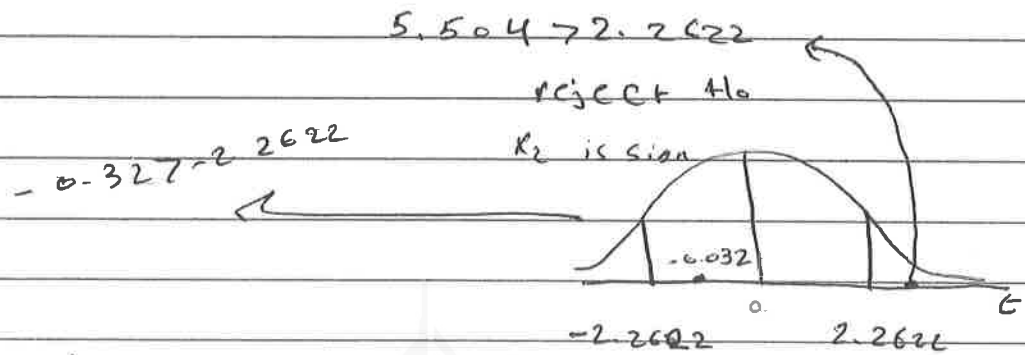 5.504 > 2.2622
reject H0
X2 is sign
-0.32 > -2.2622
-0.032
0.
t
-2.2622 2.2622